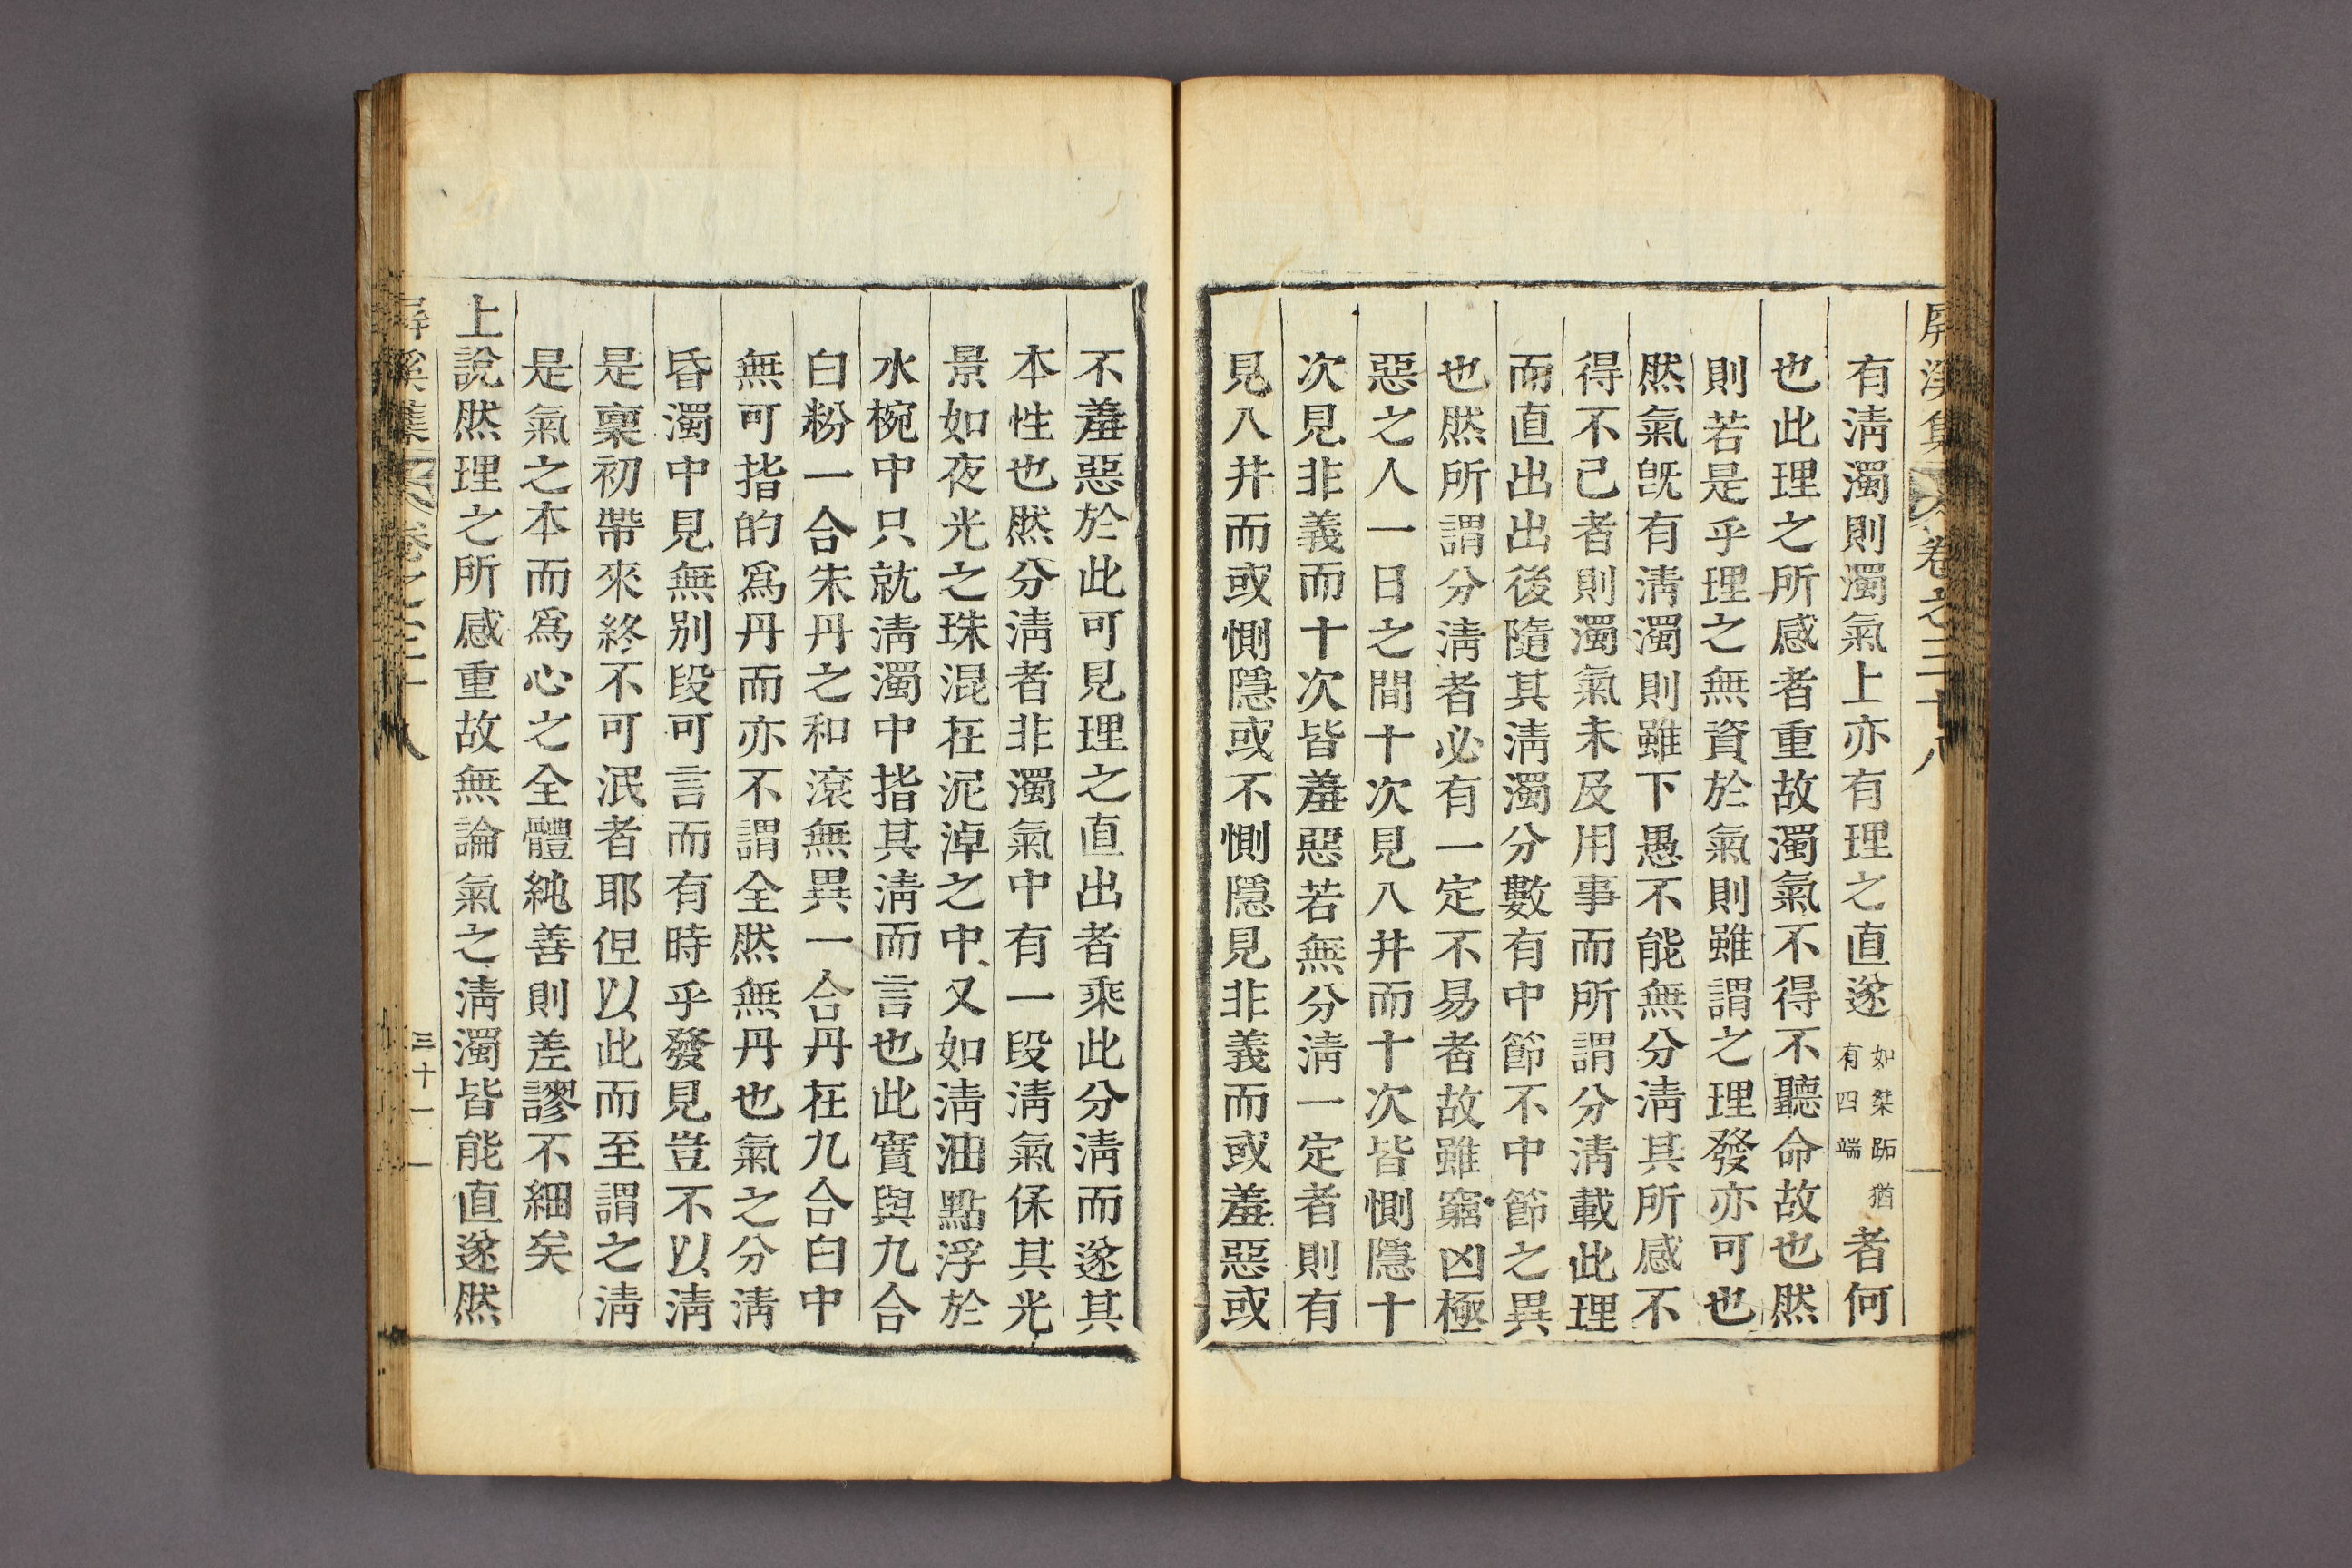 屛溪集 卷之三十八
有淸濁則濁氣上亦有理之直遂如桀跖猶有四端者何
也此理之所感者重故濁氣不得不聽命故也然
則若是乎理之無資於氣則雖謂之理發亦可也
然氣旣有淸濁則雖下愚不能無分淸其所感不
得不已者則濁氣未及用事而所謂分淸載此理
而直出出後隨其淸濁分數有中節不中節之異
也然所謂分淸者必有一定不易者故雖窮凶極
惡之人一日之間十次見八井而十次皆惻隱十
次見非義而十次皆羞惡若無分淸一定者則有
見八井而或惻隱或不惻隱見非義而或羞惡或
不羞惡於此可見理之直出者乘此分淸而遂其
本性也然分淸者非濁氣中有一段淸氣保其光
景如夜光之珠混在泥淖之中又如淸油點浮於
水椀中只就淸濁中指其淸而言也此實與九合
白粉一合朱丹之和滾無異一合丹在九合白中
無可指的爲丹而亦不謂全然無丹也氣之分淸
昏濁中見無別段可言而有時乎發見豈不以淸
是稟初帶來終不可泯者耶但以此而至謂之淸
是氣之本而爲心之全體純善則差謬不細矣
上說然理之所感重故無論氣之淸濁皆能直遂然
屛溪集 卷之三十八 三十一